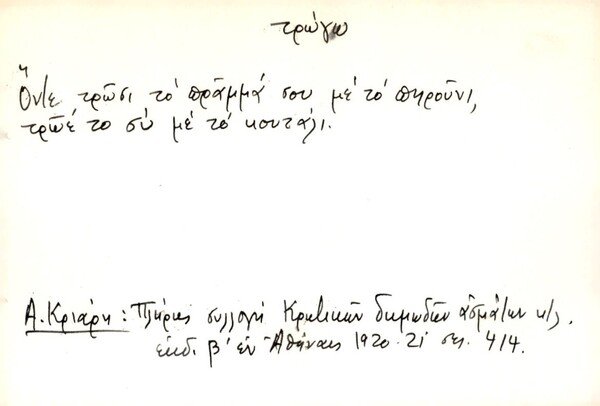 τρώγω
Ὄντε τρῶσι τὸ πρᾶμμά σου μὲ τὸ πηροῦνι,
τρῶε το σὺ μὲ τὸ κουτάλι.
Α. Κριάρη: Πλήρης συλλογὴ Κρητικῶν δημωδῶν ᾀσμάτων κ/λ.
ἔκδ. β' ἐν Ἀθήναις 1920-21 σελ. 414.